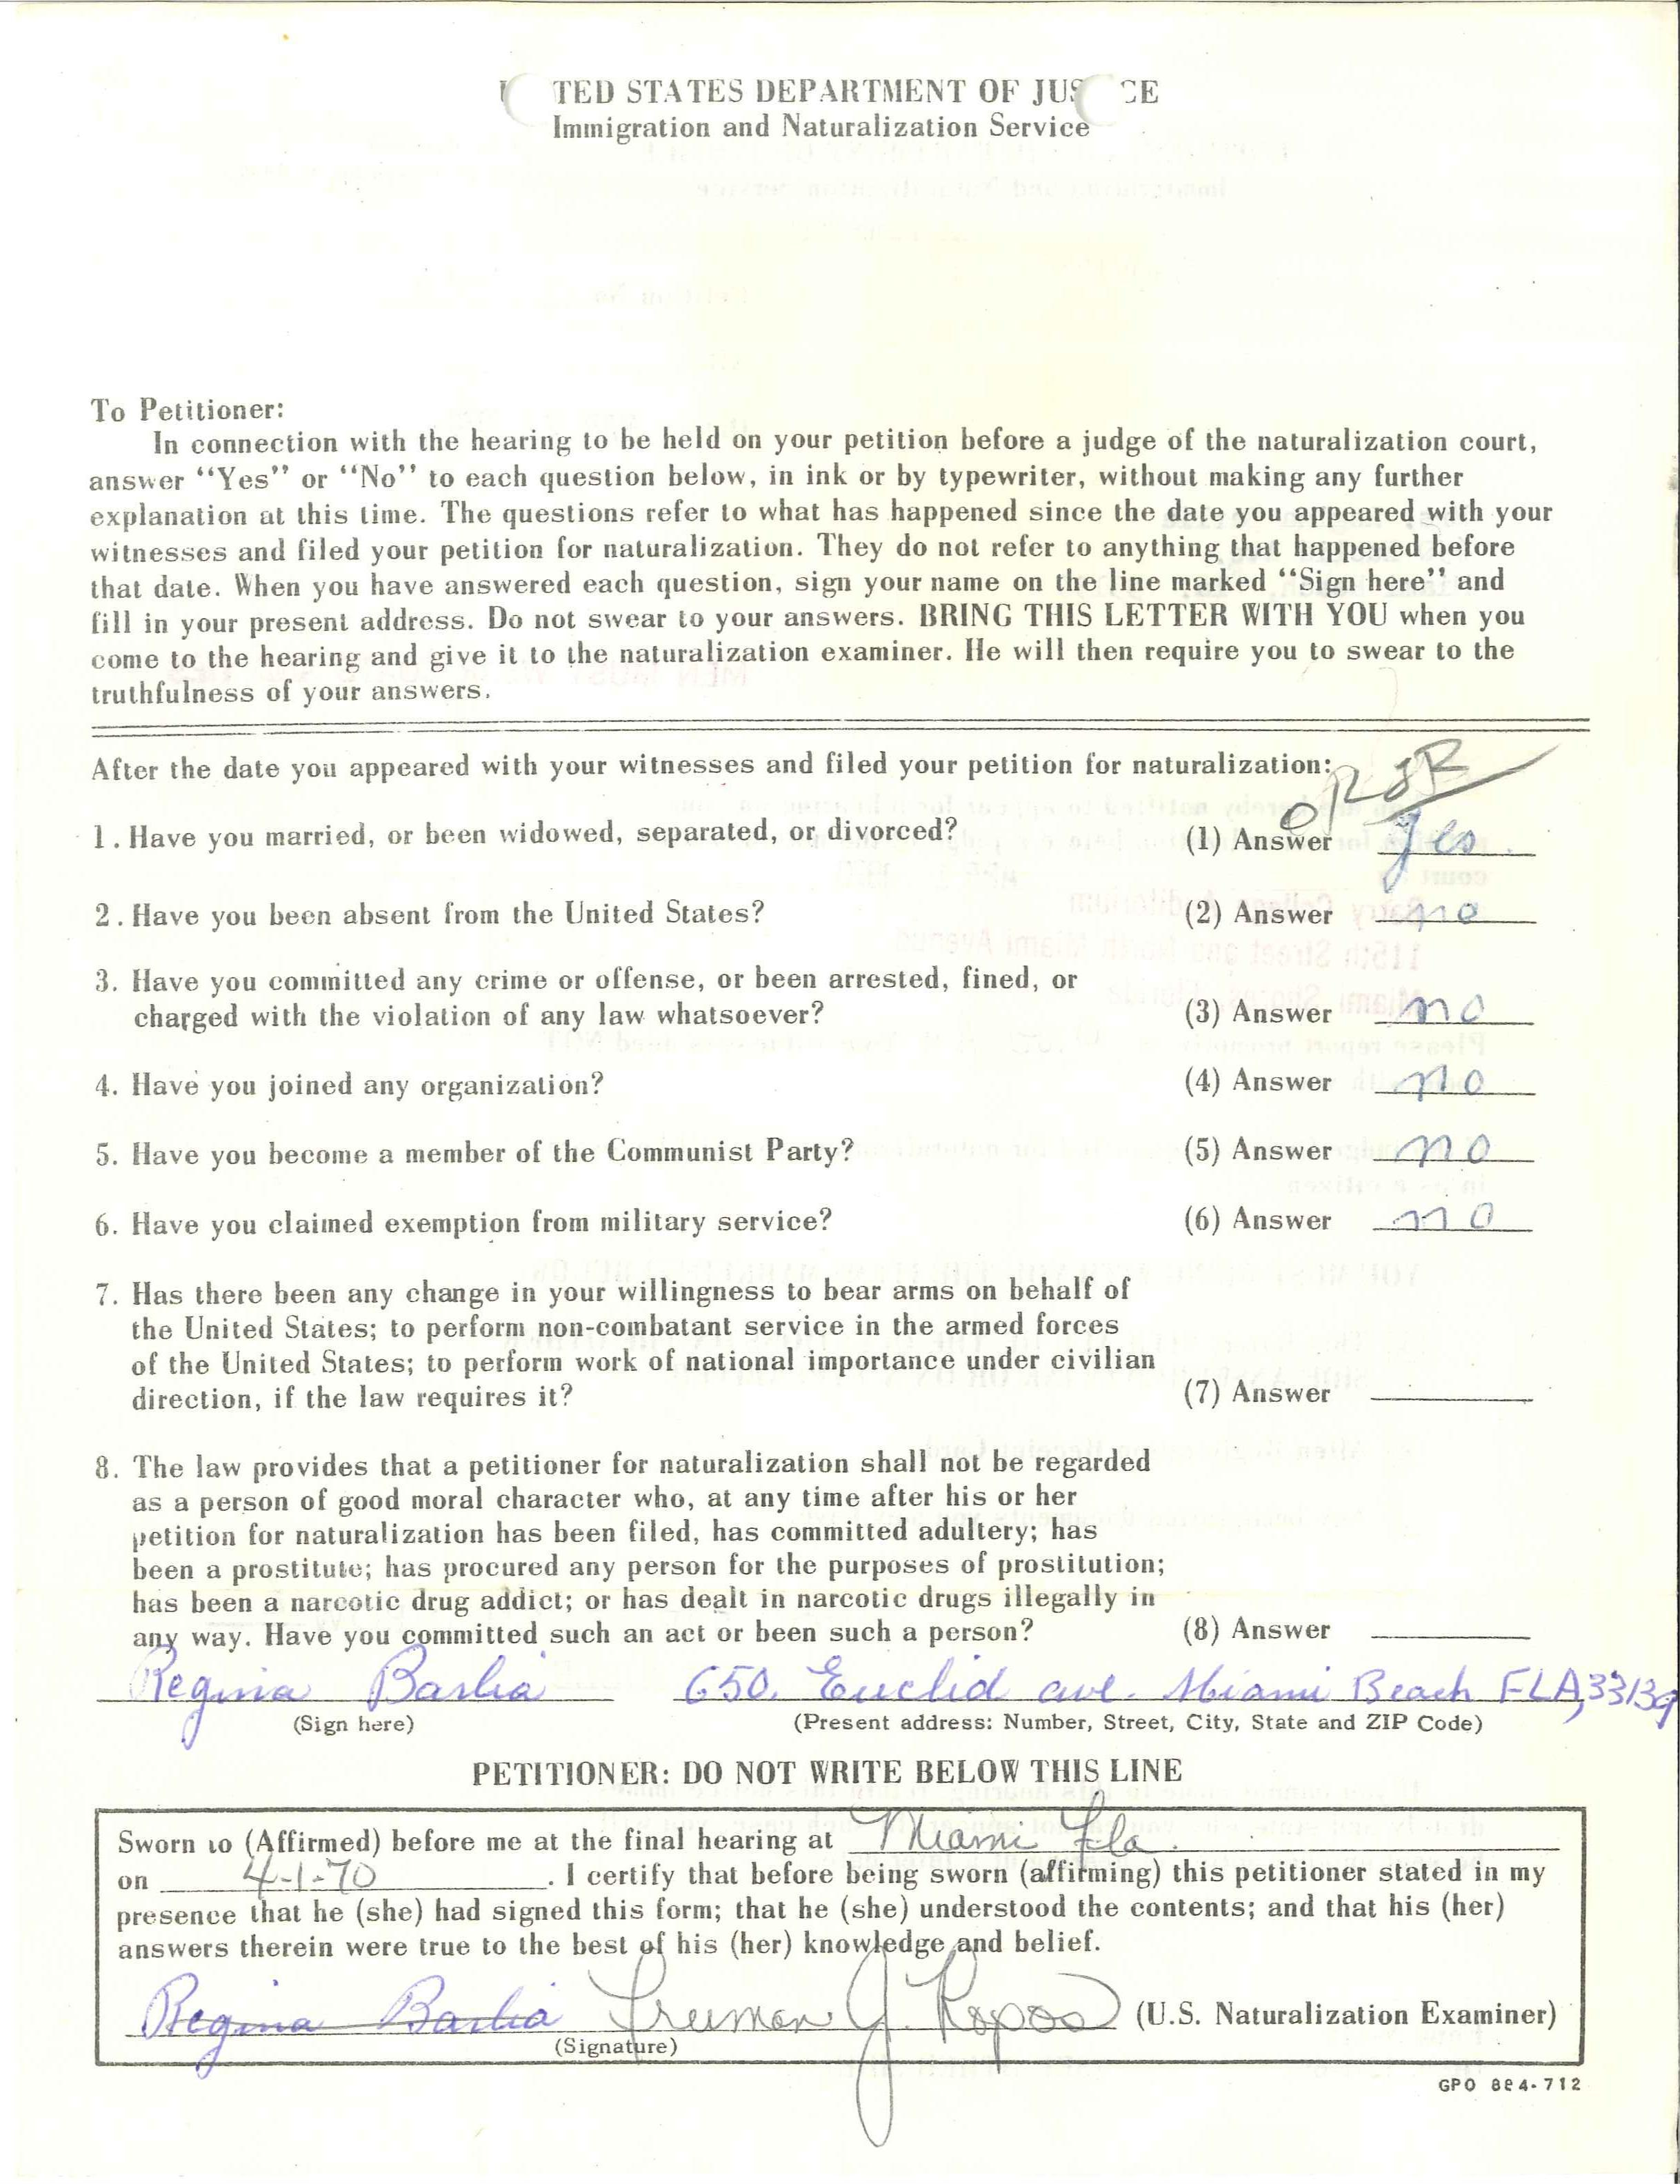 TED STATES DEPARTMENT OF JUS CE
Immigration and Naturalization Service
To Petitioner:
In connection with the hearing to be held on your petition before a judge of the naturalization court,
answer "Yes" or "No" to each question below, in ink or by typewriter, without making any further
explanation at this time. The questions refer to what has happened since the date you appeared with your
witnesses and filed your petition for naturalization. They do not refer to anything that happened before
that date. When you have answered each question, sign your name on the line marked "Sign here" and
fill in your present address. Do not swear to your answers. BRING THIS LETTER WITH YOU when you
come to the hearing and give it to the naturalization examiner. He will then require you to swear to the
truthfulness of your answers.
After the date you appeared with your witnesses and filed your petition for naturalization:
1. Have you married, or been widowed, separated, or divorced? (1) Answer yes
2. Have you been absent from the United States? (2) Answer no
3. Have you committed any crime or offense, or been arrested, fined, or
charged with the violation of any law whatsoever? (3) Answer no
4. Have you joined any organization? (4) Answer no
5. Have you become a member of the Communist Party? (5) Answer no
6. Have you claimed exemption from military service? (6) Answer no
7. Has there been any change in your willingness to bear arms on behalf of
the United States; to perform non-combatant service in the armed forces
of the United States; to perform work of national importance under civilian
direction, if the law requires it? (7) Answer
8. The law provides that a petitioner for naturalization shall not be regarded
as a person of good moral character who, at any time after his or her
petition for naturalization has been filed, has committed adultery; has
been a prostitute; has procured any person for the purposes of prostitution;
has been a narcotic drug addict; or has dealt in narcotic drugs illegally in
any way. Have you committed such an act or been such a person? (8) Answer
Regina Barlia 650. Euclid ave. Miami Beach FLA, 33139
(Sign here) (Present address: Number, Street, City, State and ZIP Code)
PETITIONER: DO NOT WRITE BELOW THIS LINE
Sworn to (Affirmed) before me at the final hearing at Miami Fla.
on 4-1-70. I certify that before being sworn (affirming) this petitioner stated in my
presence that he (she) had signed this form; that he (she) understood the contents; and that his (her)
answers therein were true to the best of his (her) knowledge and belief.
Regina Barlia Freeman J. (U.S. Naturalization Examiner)
(Signature)
GPO 884-712